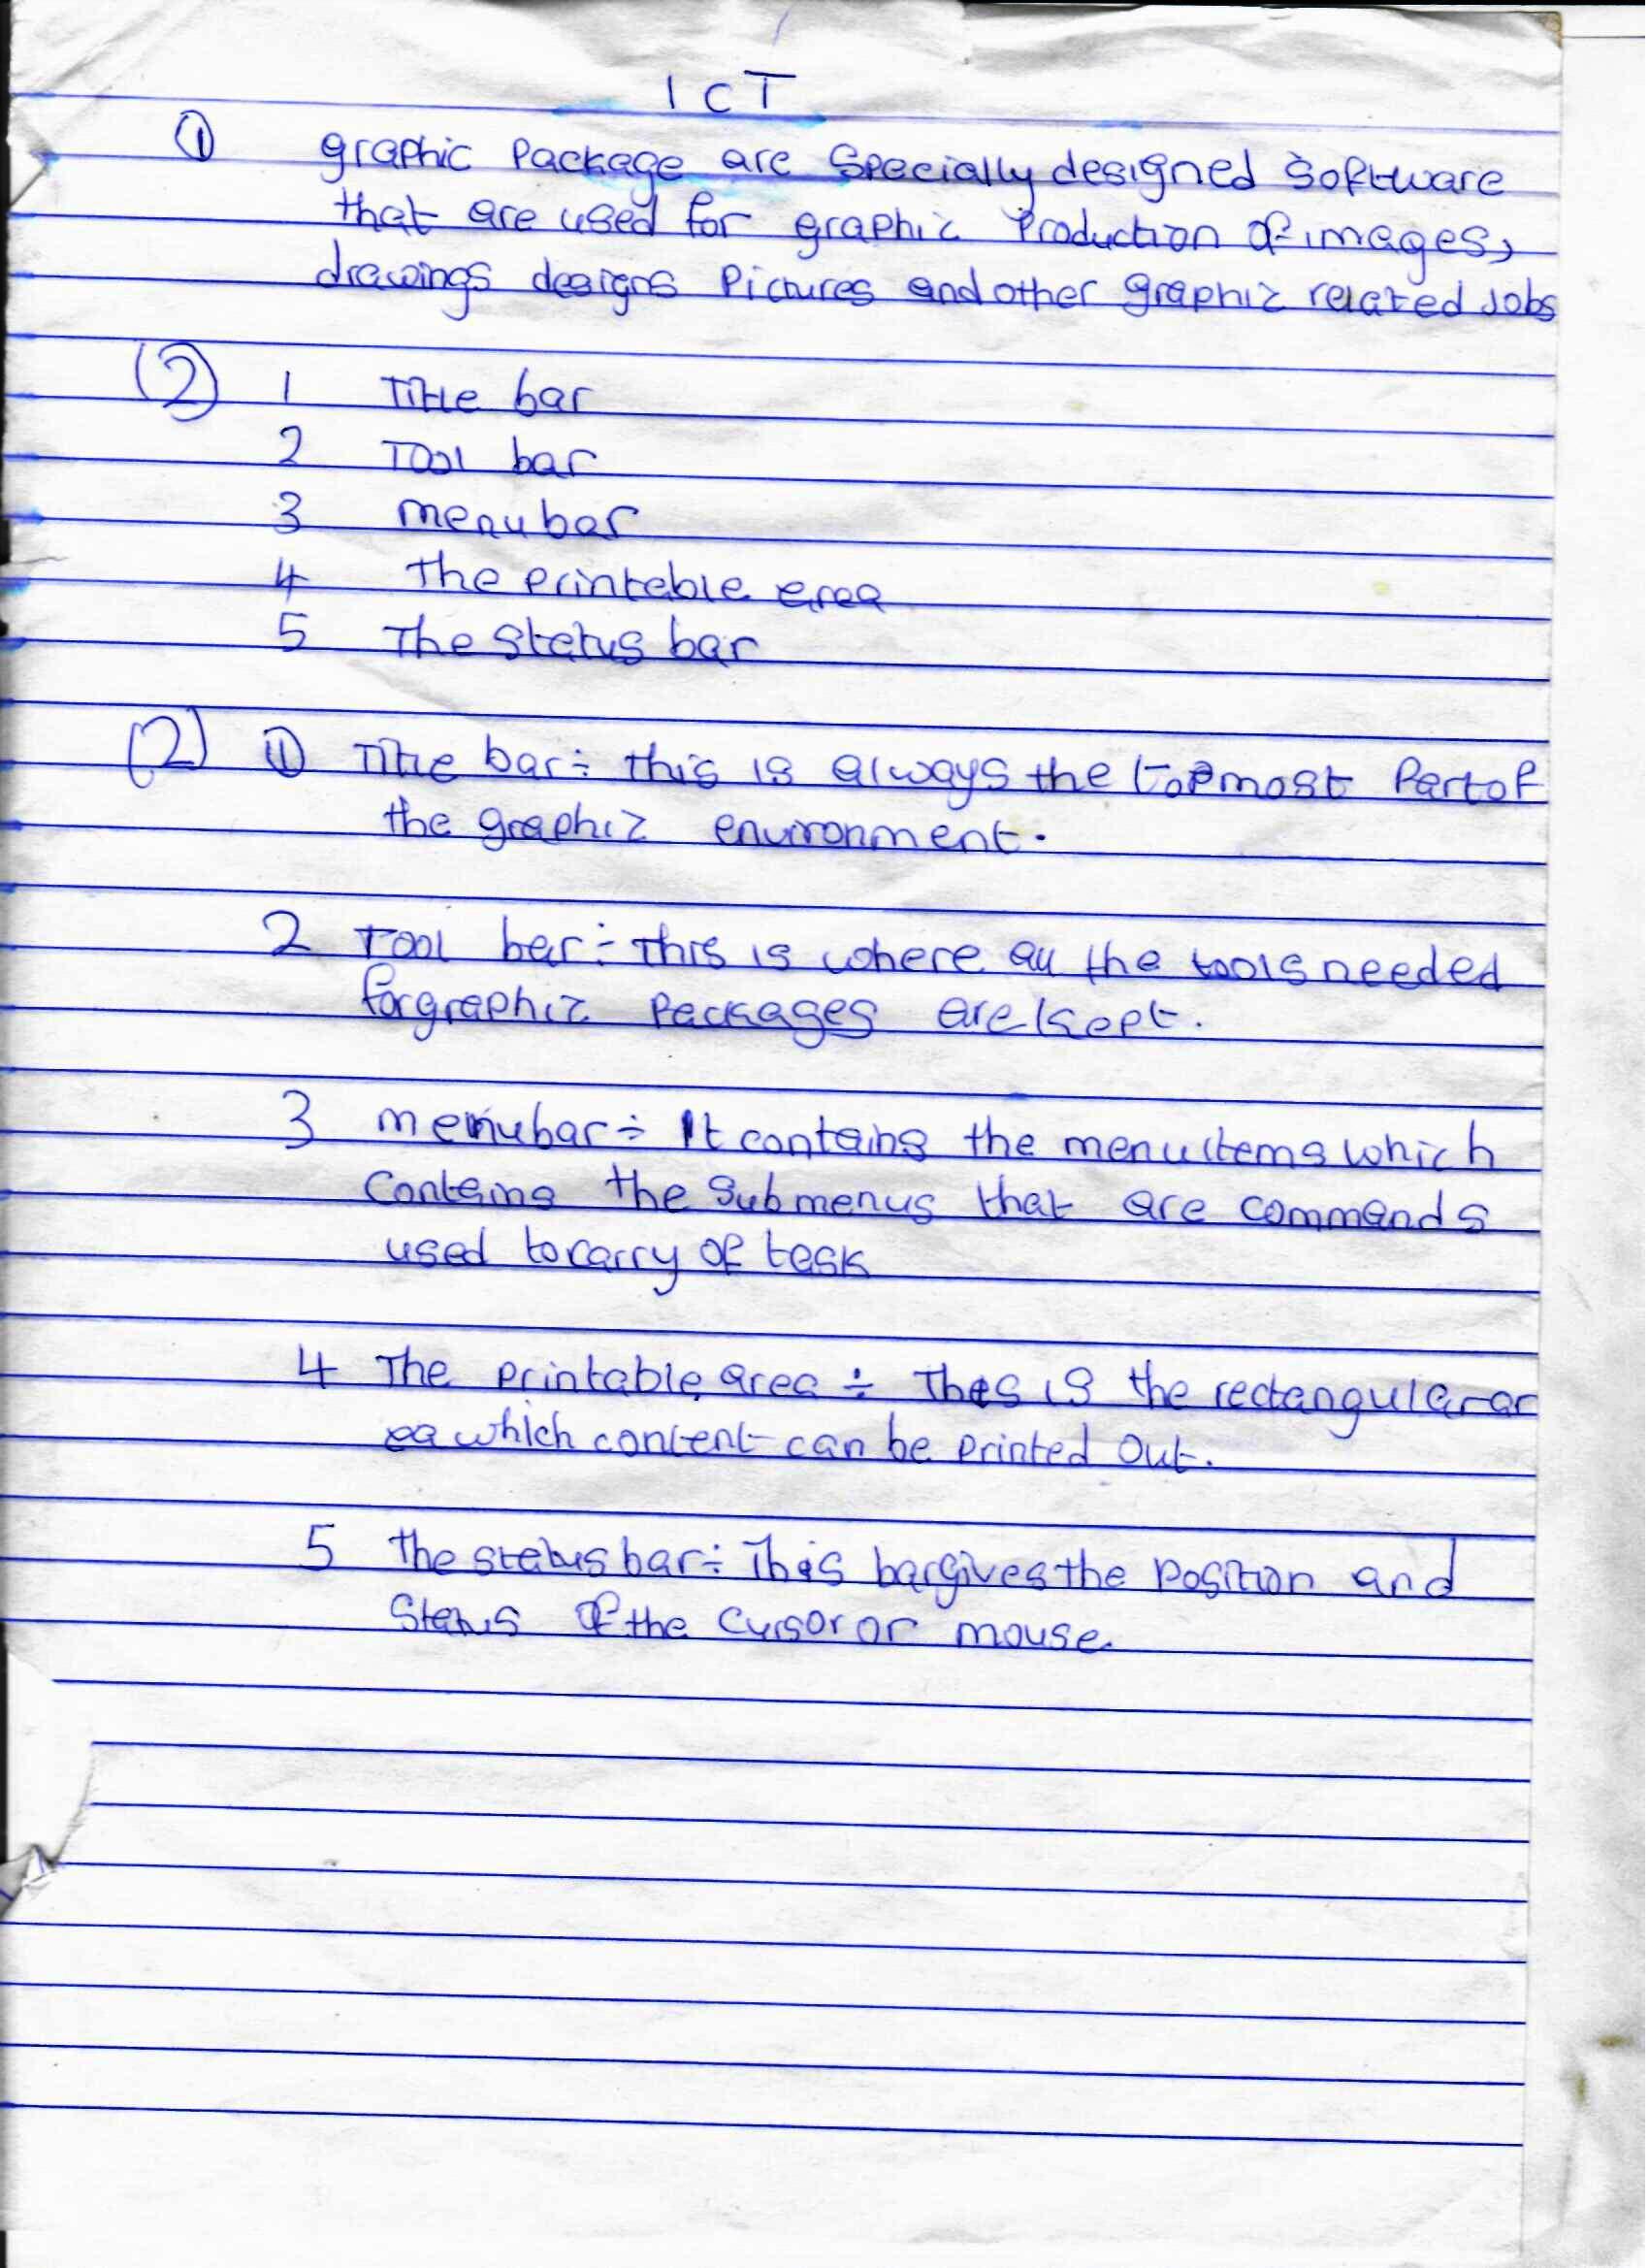 ICT
① graphic Package are Specially designed Software
that are used for graphic Production of images,
drawings designs Pictures and other graphic related Jobs
(2) 1 Title bar
2 Tool bar
3 menubar
4 The printable area
5 The Status bar
(2) ① Title bar÷ this is always the topmost Part of
the graphic environment.
2 Tool bar÷ This is where all the tools needed
for graphic Packages are kept.
3 menubar÷ It contains the menu items which
Contains the Submenus that are commands
used to carry of task
4 The printable area ÷ This is the rectangular ar
ea which content can be printed Out.
5 the status bar÷ This bar gives the Position and
Status of the Cursor or mouse.